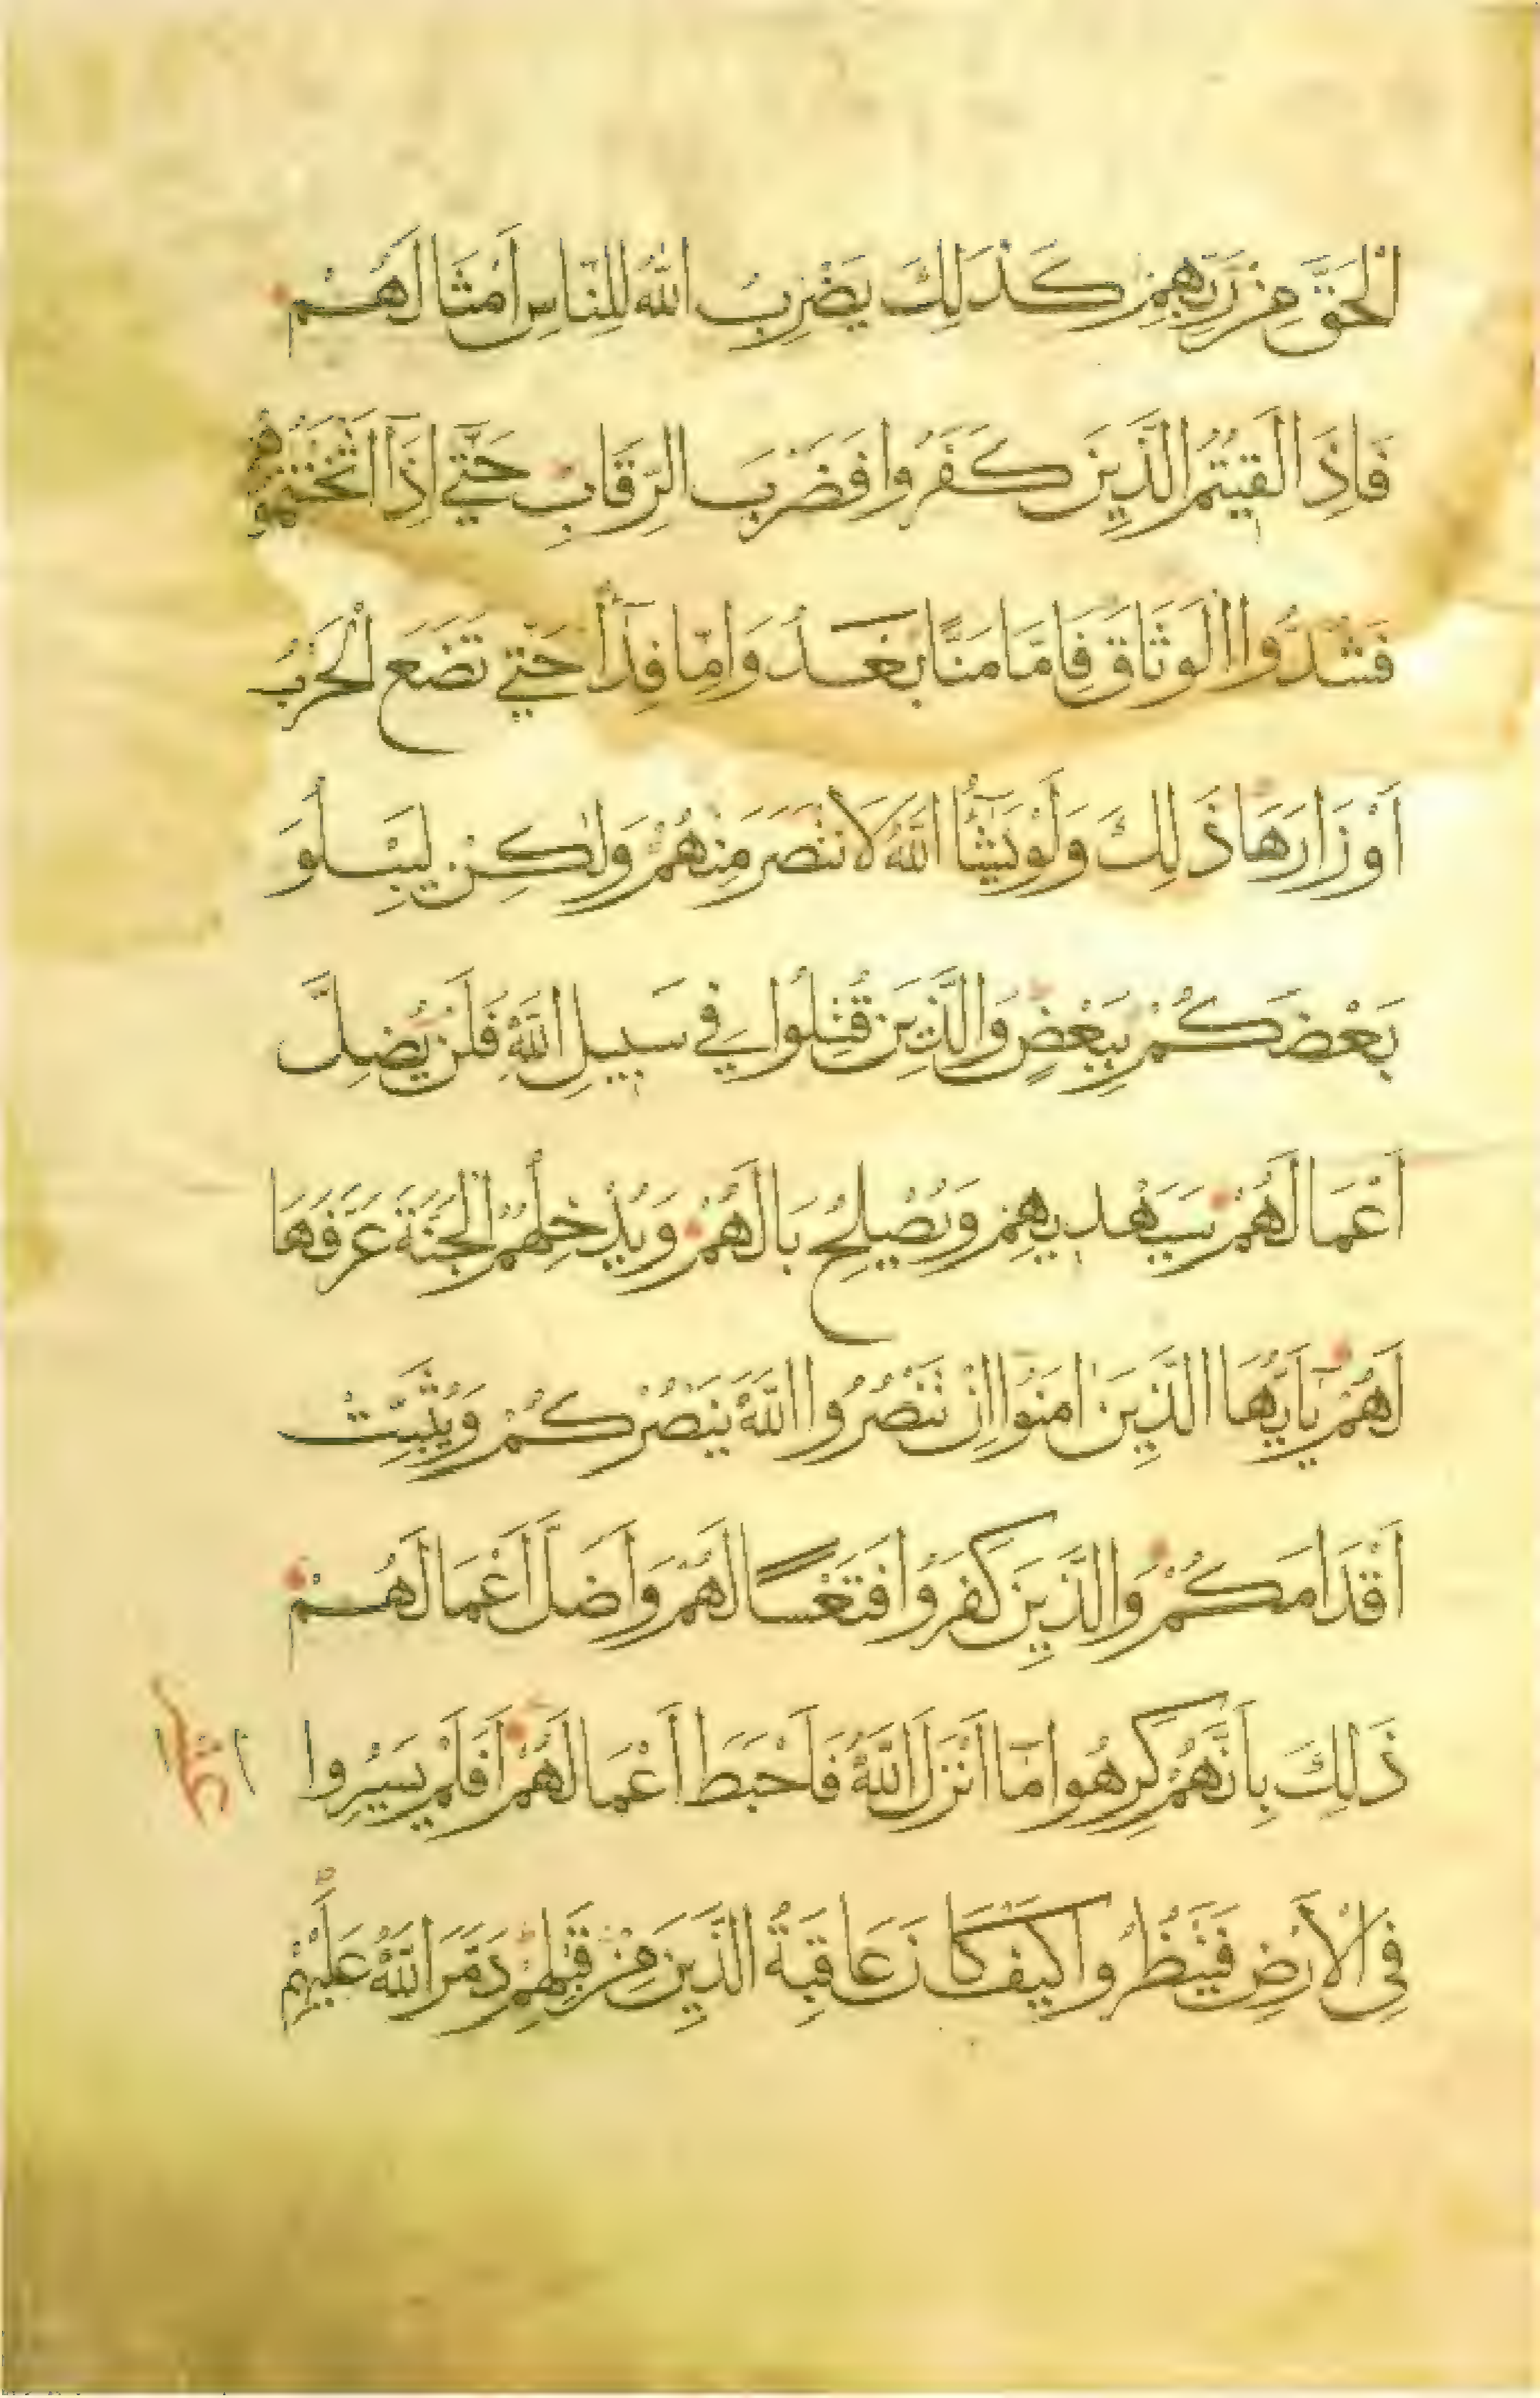 الْحَقَّ مِنْ رَبِّهِمْ كَذٰلِكَ يَضْرِبُ اللّٰهُ لِلنَّاسِ اَمْثَالَهُمْ
فَاِذَا لَقِيتُمُ الَّذِينَ كَفَرُوا فَضَرْبَ الرِّقَابِ حَتّٰى اِذَا اَثْخَنْتُمُوهُمْ
فَشُدُّوا الْوَثَاقَ فَاِمَّا مَنًّا بَعْدُ وَاِمَّا فِدَاءً حَتّٰى تَضَعَ الْحَرْبُ
اَوْزَارَهَا ذٰلِكَ وَلَوْ يَشَاءُ اللّٰهُ لَانْتَصَرَ مِنْهُمْ وَلٰكِنْ لِيَبْلُوَ
بَعْضَكُمْ بِبَعْضٍ وَالَّذِينَ قُتِلُوا فِي سَبِيلِ اللّٰهِ فَلَنْ يُضِلَّ
اَعْمَالَهُمْ سَيَهْدِيهِمْ وَيُصْلِحُ بَالَهُمْ وَيُدْخِلُهُمُ الْجَنَّةَ عَرَّفَهَا
لَهُمْ يَآ اَيُّهَا الَّذِينَ اٰمَنُوا اِنْ تَنْصُرُوا اللّٰهَ يَنْصُرْكُمْ وَيُثَبِّتْ
اَقْدَامَكُمْ وَالَّذِينَ كَفَرُوا فَتَعْسًا لَهُمْ وَاَضَلَّ اَعْمَالَهُمْ
ذٰلِكَ بِاَنَّهُمْ كَرِهُوا مَآ اَنْزَلَ اللّٰهُ فَاَحْبَطَ اَعْمَالَهُمْ اَفَلَمْ يَسِيرُوا
فِي الْاَرْضِ فَيَنْظُرُوا كَيْفَ كَانَ عَاقِبَةُ الَّذِينَ مِنْ قَبْلِهِمْ دَمَّرَ اللّٰهُ عَلَيْهِمْ